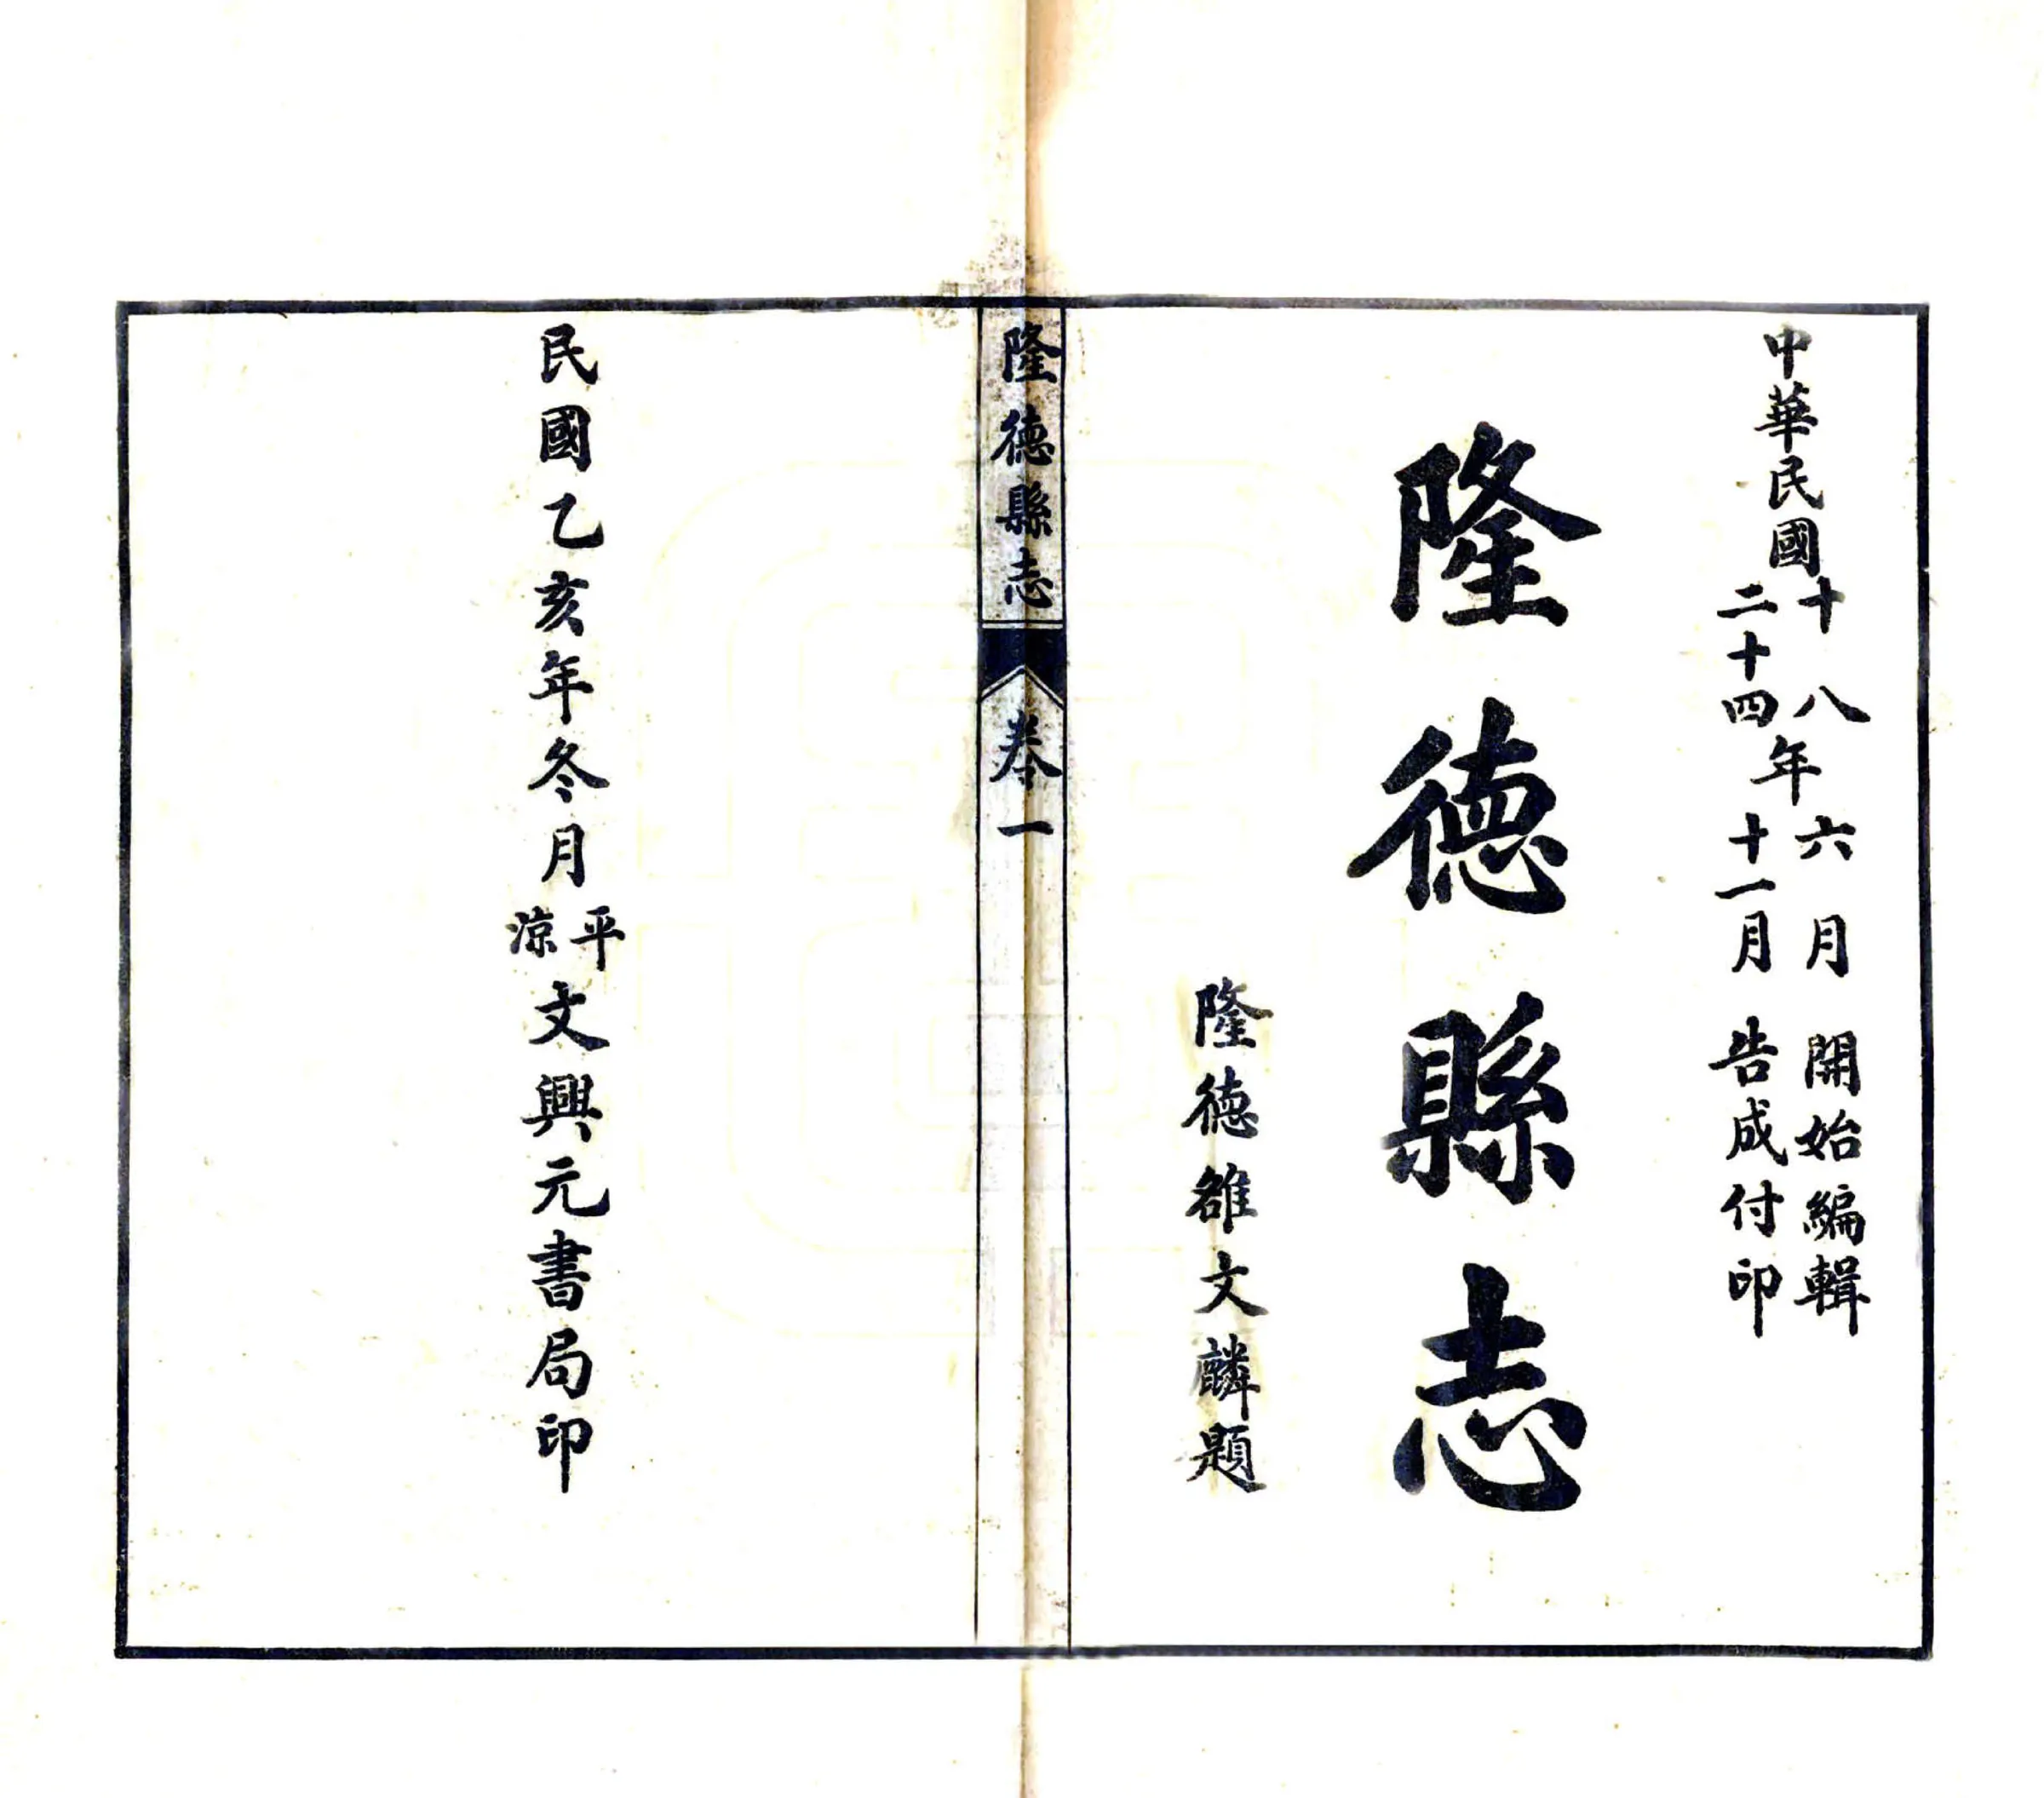 中華民國
十八年六月開始編輯
二十四年十一月告成付印
隆德縣志
隆德雒文麟題
隆德縣志 卷一
民國乙亥年冬月平涼文興元書局印